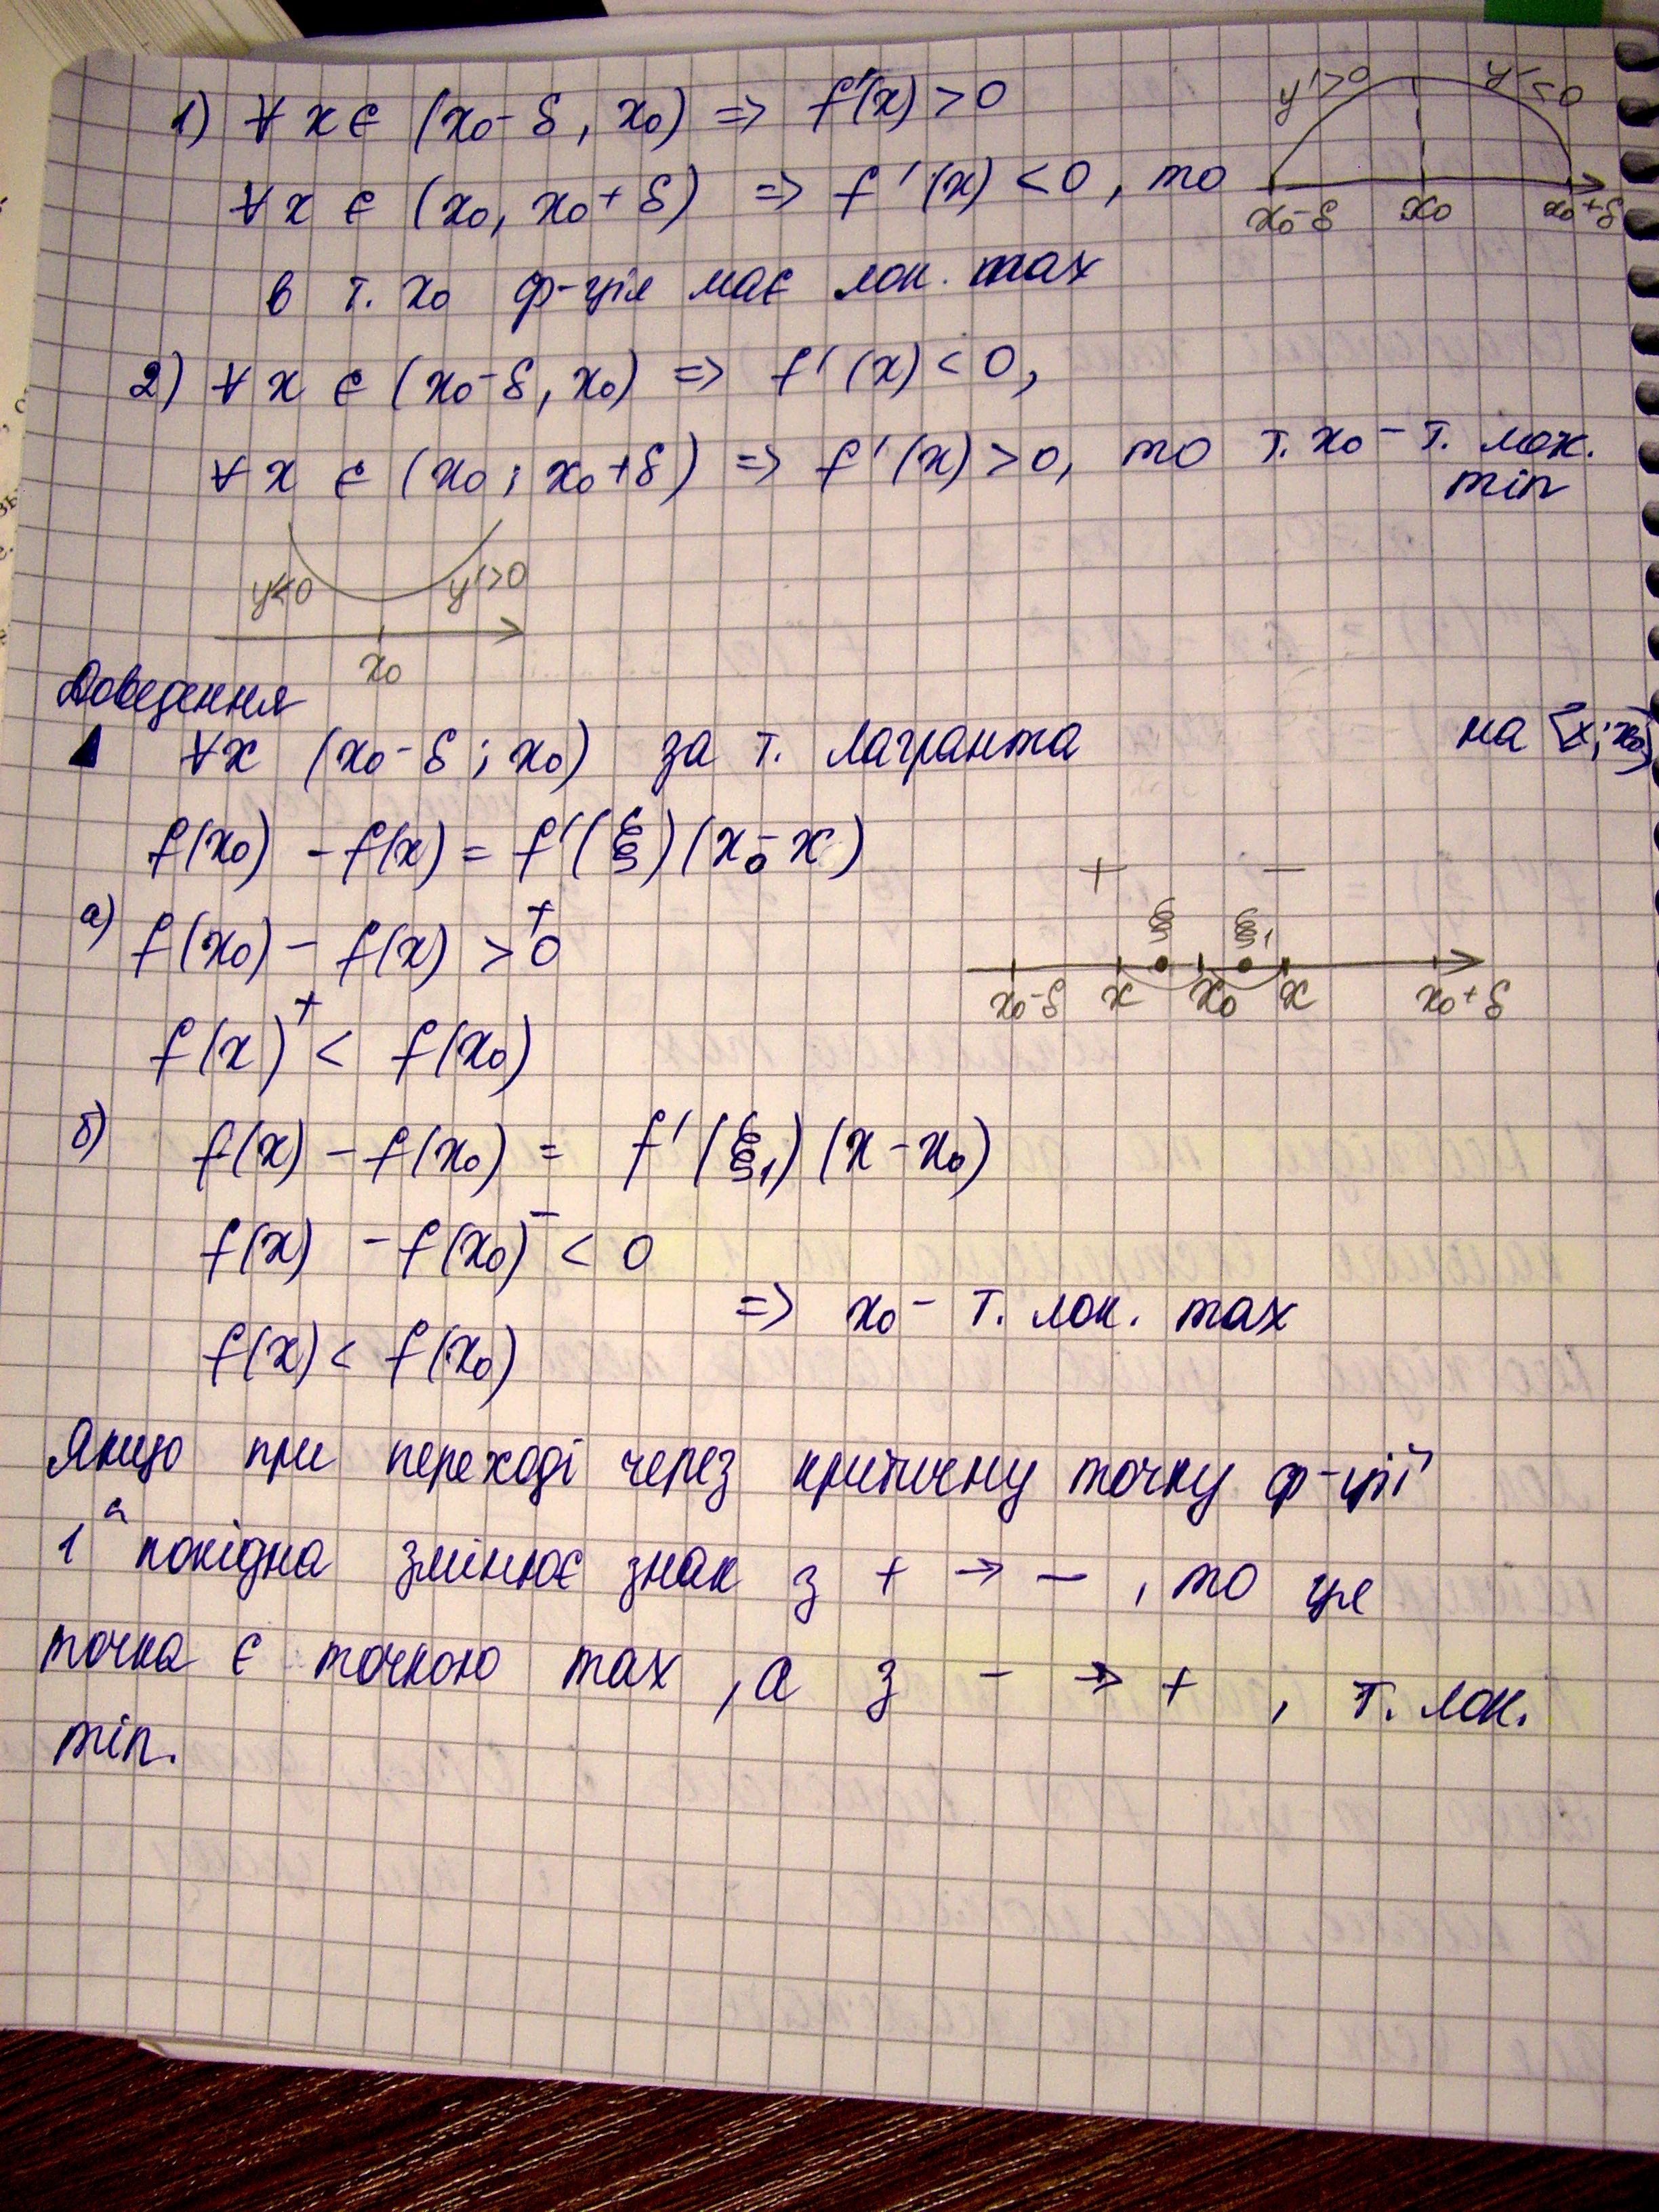 1) ∀ x ∈ (x₀-δ, x₀) => f'(x) > 0
y'>0 y'<0
∀ x ∈ (x₀, x₀+δ) => f'(x) < 0, то
x₀-δ x₀ x₀+δ
в т. x₀ ф-ція має лок. max
2) ∀ x ∈ (x₀-δ, x₀) => f'(x) < 0,
∀ x ∈ (x₀; x₀+δ) => f'(x) > 0, то т. x₀ - т. лок.
min
y'<0 y'>0
x₀
Доведення
∀x (x₀-δ; x₀) за т. Лагранта на [x; x₀]
f(x₀) - f(x) = f'(ξ)(x₀-x)
+ −
а) f(x₀) - f(x) > 0
+
ξ ξ₁
x₀-δ x x₀ x x₀+δ
+
f(x) < f(x₀)
б) f(x) - f(x₀) = f'(ξ₁)(x-x₀)
−
f(x) - f(x₀) < 0
=> x₀ - т. лок. max
f(x) < f(x₀)
Якщо при переході через критичну точку ф-ції
1ᵃ похідна змінює знак з + → − , то ця
точка є точкою max , а з − → + , т. лок.
min.